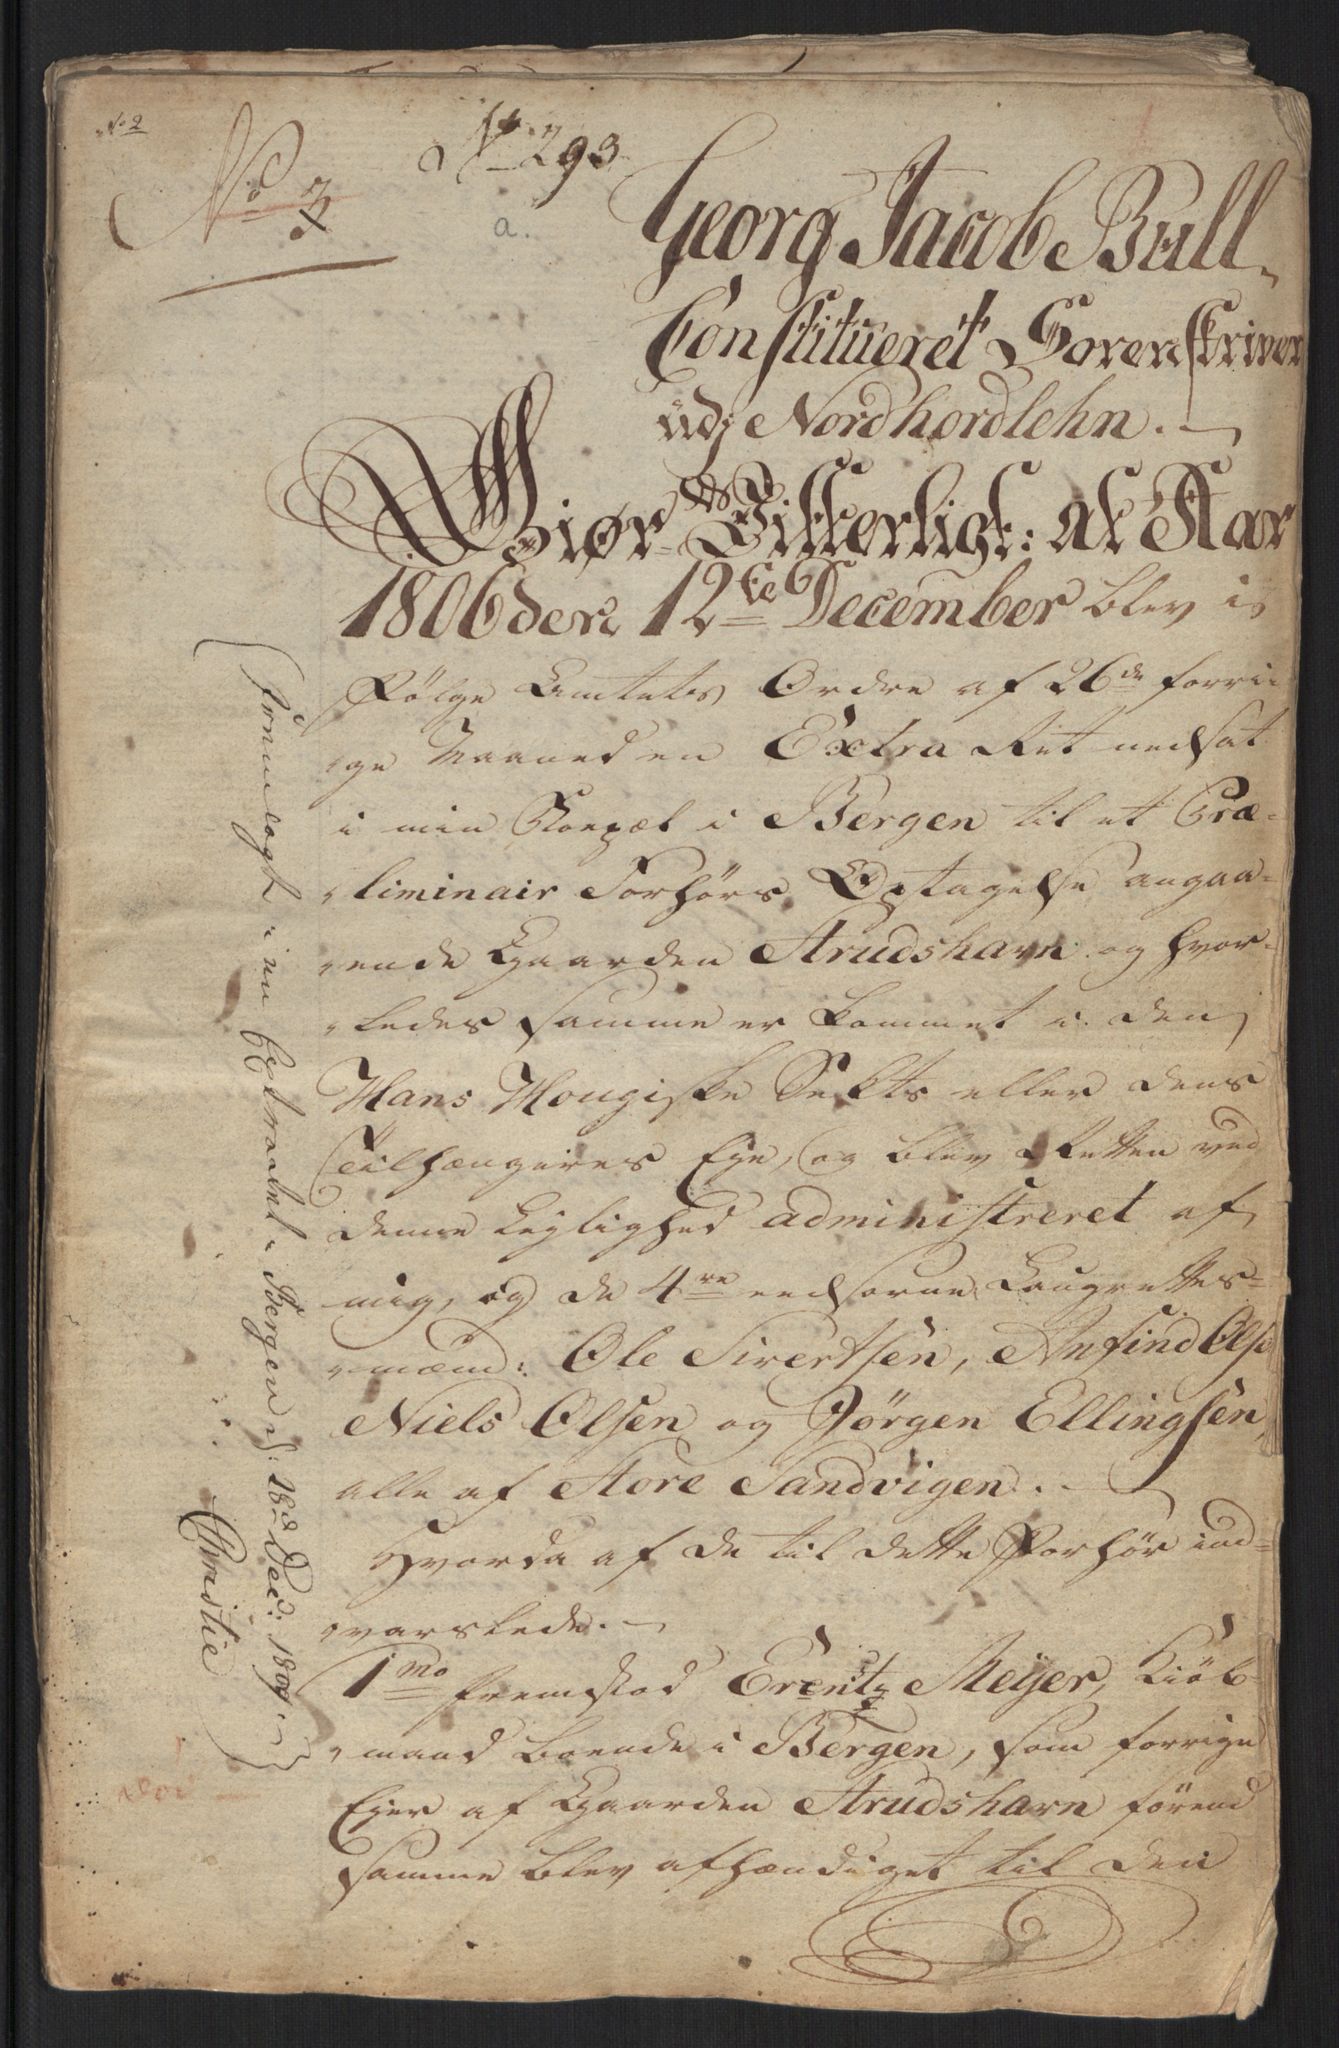 No 2
No 3
No 293
a.
Georg Jacob Bull
Constitueret Sorenskriver
udj Nordhordlehn.
Giør Vitterligt: at Aar
1806 den 12te December blev i
Følge Amtets Ordre af 26de forri-
ge Maaned en Extra Ret nedsat
i min Contoir i Bergen til et Præ-
liminair Forhørs Optagelse angaa-
ende Gaarden Strudshavn og hvor-
ledes samme er kommet i den
Hans Hougiske Sekts eller dens
Tilhængeres Eje, og blev Retten ved
denne Lejlighed administreret af
mig, og de 4re eedsorne Laugrettes-
mænd: Ole Sivertsen, Anfind Ols:
Niels Olsen og Jörgen Ellingsen,
alle af Store Sandvigen.
Hvorda af de til dette Forhör ind-
varslede.
1mo fremstod Erentz Meyer, Kiöb-
mand boende i Bergen, som forrige
Ejer af Gaarden Strudshavn förend
samme blev afhændiget til den
Fremlagt i en Extraret i Bergen d: 18d Dec: 1809.
Christie